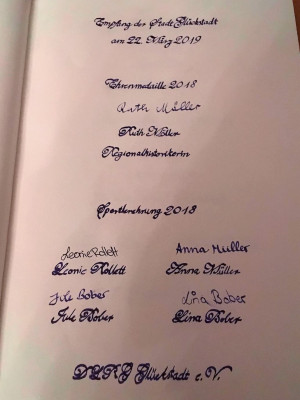 Empfang der Stadt Glückstadt
am 22. März 2019
Ehrenmedaille 2018
Ruth Möller
Ruth Möller
Regionalhistorikerin
Sportlerehrung 2018
Leonie Kollett
Anna Müller
Leonie Kollett
Anna Müller
Jule Bober
Lina Bober
Jule Bober
Lina Bober
DLRG Glückstadt e.V.